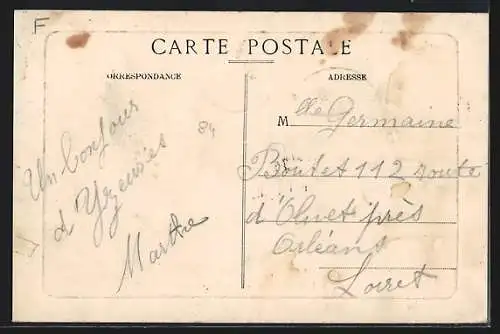 F
CARTE POSTALE
ORRESPONDANCE
ADRESSE
84
Un bonjour
d'Yzeures
Marthe
Mlle Germaine
Boutet 112 route
d'Olivet près
Orléans
Loiret